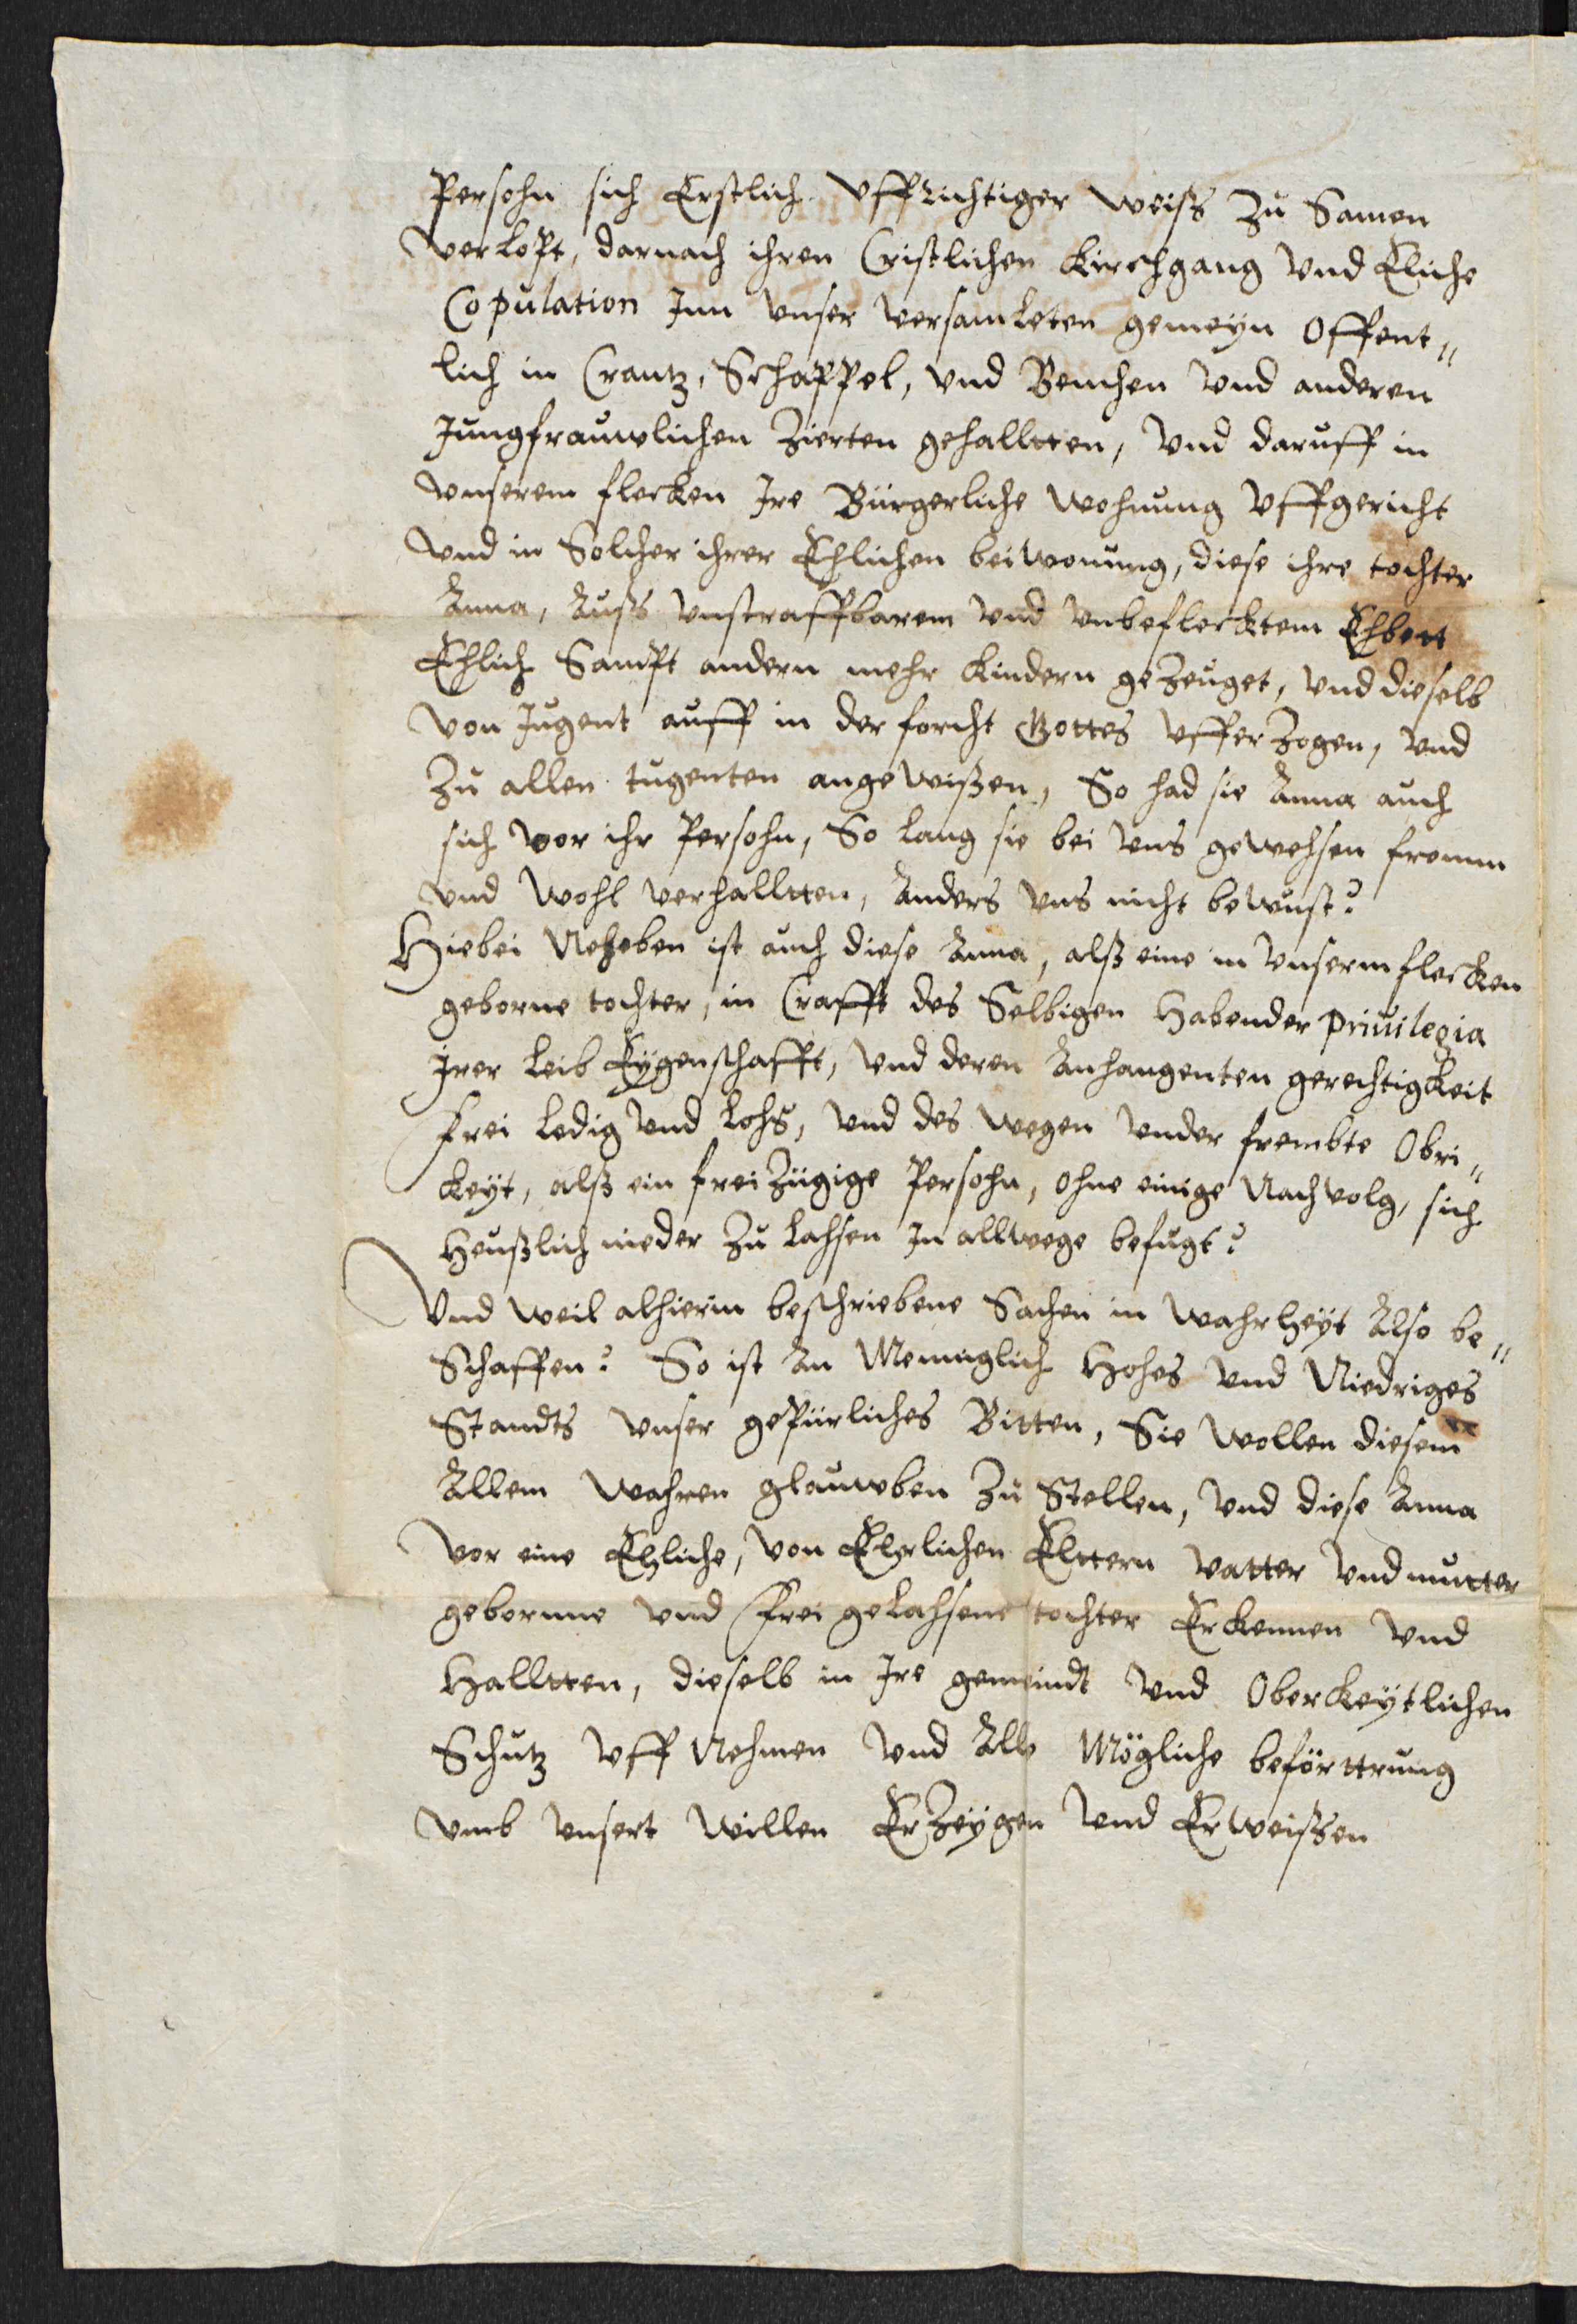 Persohn sich Erstlich Uffrichtiger weiß zu Samen
verlopt, darnach ihren Cristlichen Kirchgang und Eliche
Copulation Inn unser versamleten gemeyn Offent„
lich in Crantz, Schappel, und Benchen und anderen
Jungfrauwlichen Zierten gehalltten, und daruff in
unserem flecken Ire Bürgerliche wohnung Uffgericht
und in Solcher ihrer Ehlichen beiwonung, diese ihre tochter
Anna, Auß unstraffbarem und unbeflecktem Ehbett
Ehlich Sampt andern mehr kindern gezeuget, und dieselb
von Jugent auff in der forcht Gottes Ufferzogen, und
zu allen tugenten angewißen, So had sie Anna auch
sich vor ihr Persohn, So lang sie bei uns gewehsen fromm
und wohl verhalltten, Anders uns nicht bewust?
Hiebei Neheben ist auch diese Anna, alß eine in unserm flecken
geborne tochter, in Crafft des Selbigen Habender privilegia
Irer Leib Eygenschafft, und deren Anhangenten gerechtigkeit
frei Ledig und Lohß, und des wegen under frembte Obri„
keyt, alß ein freizügige Persohn, ohne einige Nachvolg, sich
Heußlich nieder zu Lahsen In allwege befugt?
Und weil alhierin beschriebene Sachen in wahrheyt Also be„
Schaffen? So ist An Menniglich Hohes und Niedriges
Standts unser gepürliches Bitten, Sie wollen diesem
Allem wahren glauwben zu Stellen, und diese Anna
vor eine Ehliche, von Ehrlichen Elttern vatter und mutter
gebornne und frei gelahsene tochter Erkennen und
Halltten, dieselb in Ire gemeindt und Oberkeytlichen
Schutz Uff Nehmen und Alle Mögliche beförttrung
umb unsert willen Erzeygen und Erweißen